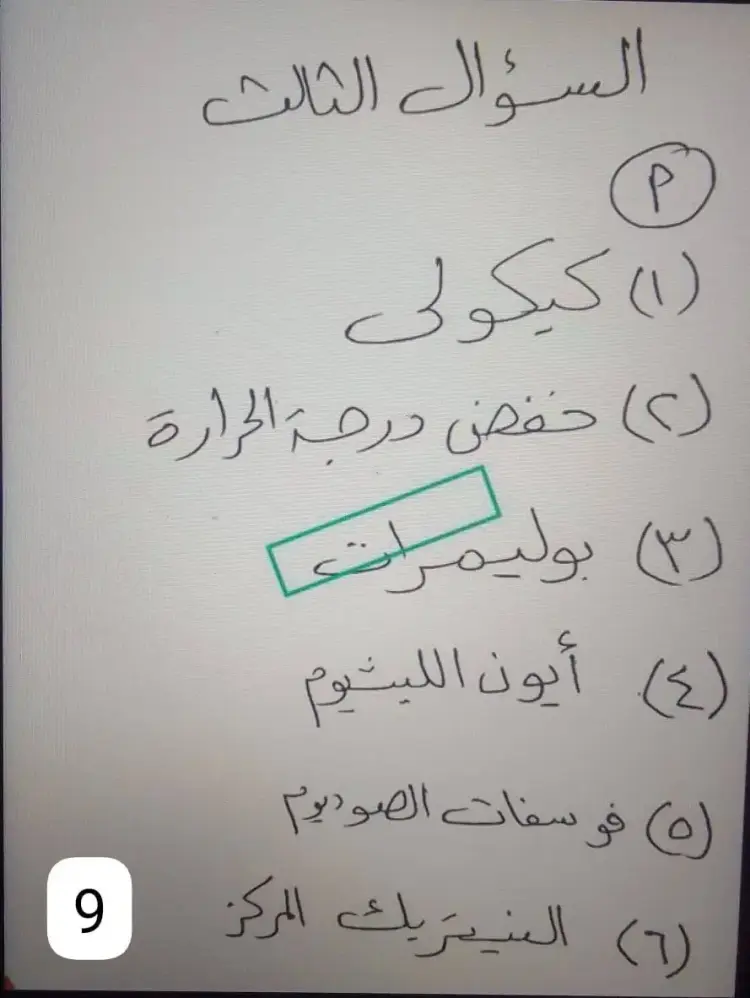 السؤال الثالث
م
(١) كيكولى
(٢) خفض درجة الحرارة
(٣) بوليمرات
(٤) أيون الليثيوم
(٥) فوسفات الصوديوم
(٦) النيتريك المركز
9